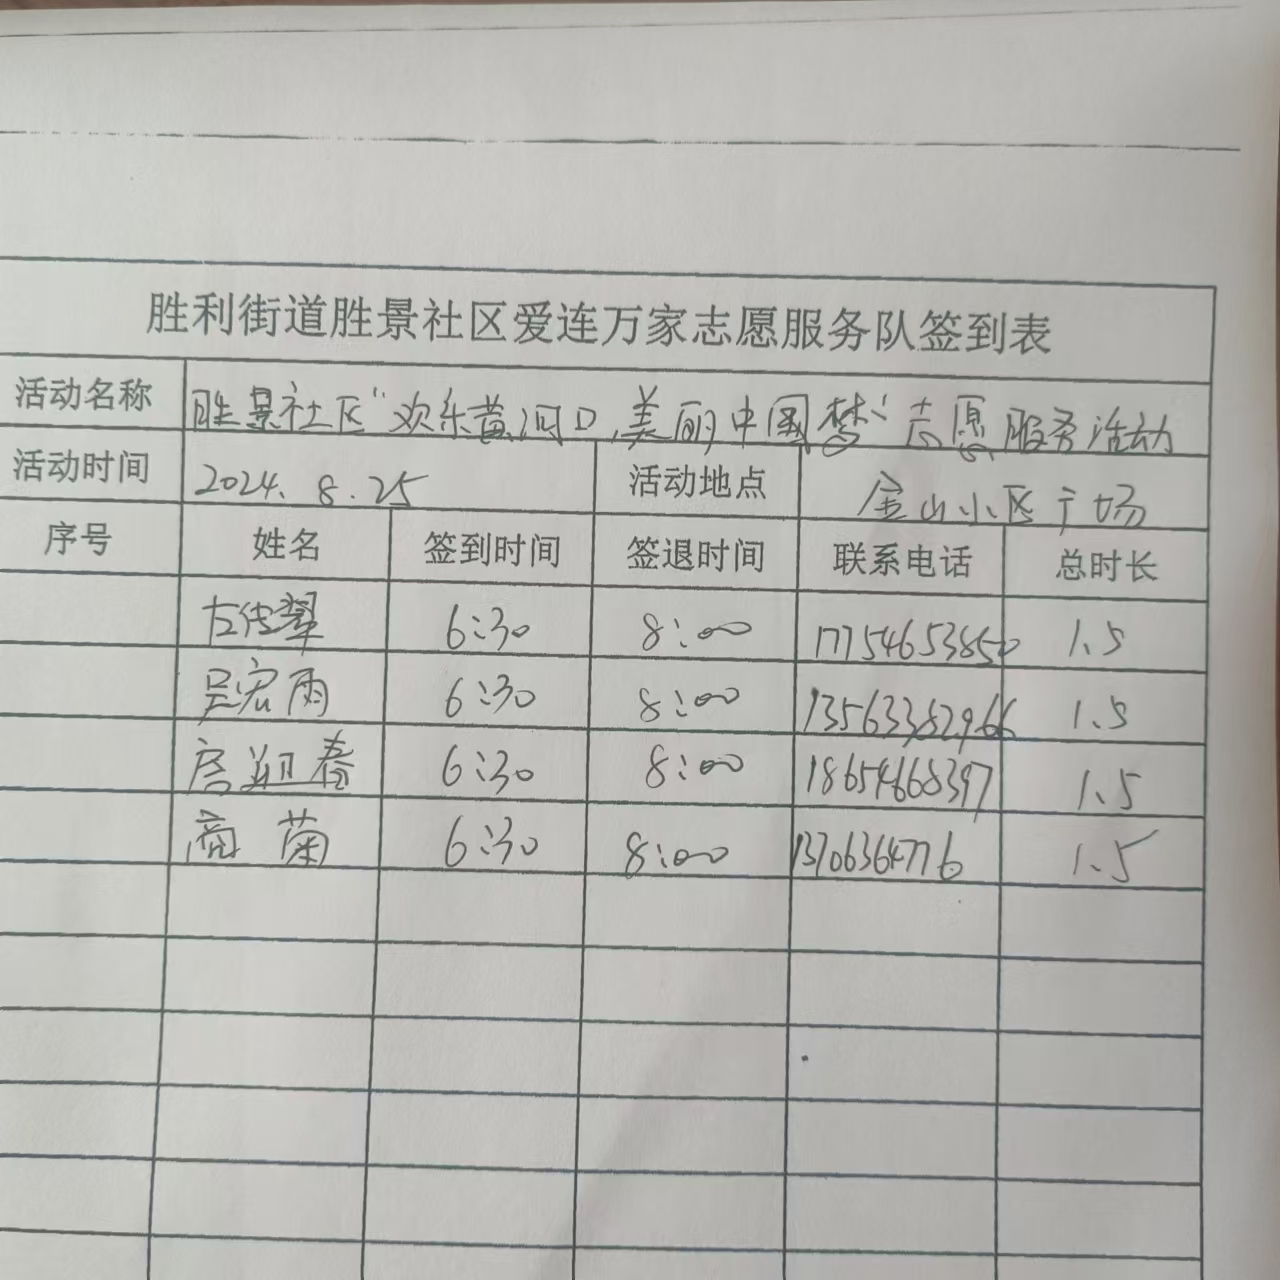 胜利街道胜景社区爱连万家志愿服务队签到表
活动名称 胜景社区“欢乐黄河口,美丽中国梦”志愿服务活动
活动时间 2024.8.25 活动地点 金山小区广场
序号 姓名 签到时间 签退时间 联系电话 总时长
6:30 8:00 17754653850 1.5
吴宏雨 6:30 8:00 13563382966 1.5
6:30 8:00 18654668397 1.5
商菊 6:30 8:00 13706364776 1.5